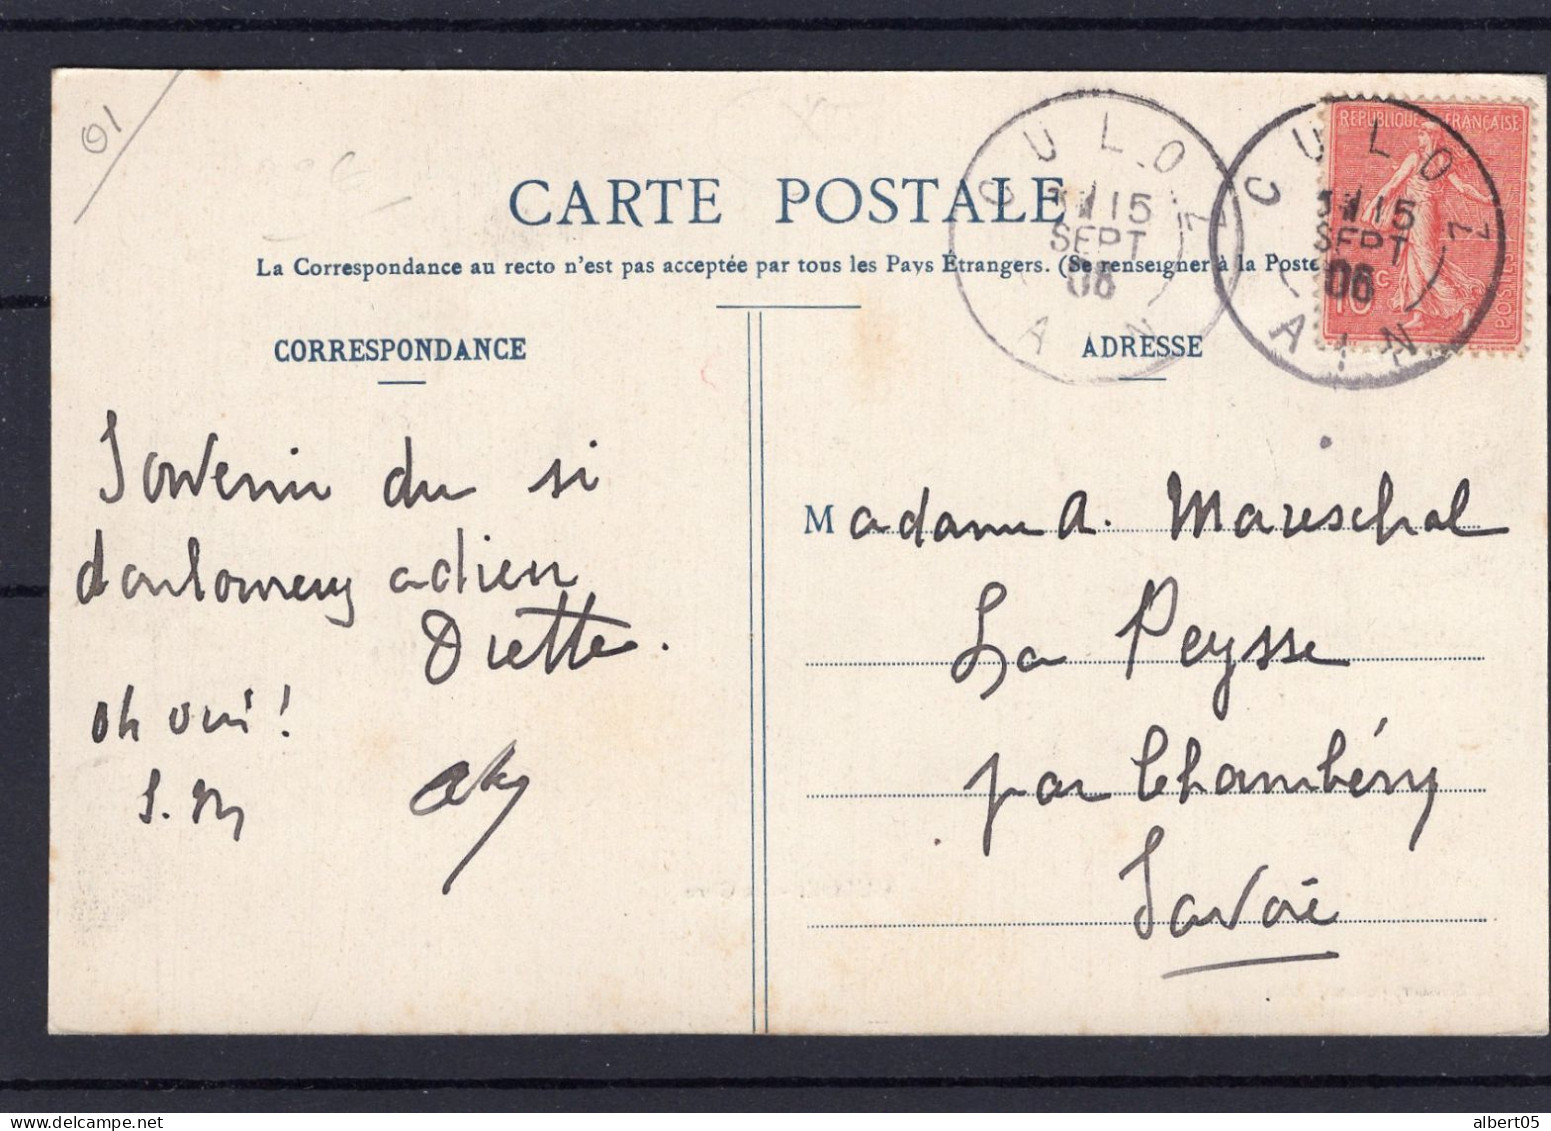 01
CARTE POSTALE
La Correspondance au recto n'est pas acceptée par tous les Pays Étrangers. (Se renseigner à la Poste
CULOZ
15
SEPT
06
AIN
CULOZ
15
SEPT
06
AIN
REPUBLIQUE FRANÇAISE
10 c
POSTES
CORRESPONDANCE
Souvenir du si
douloureux adieu
oh oui!
S. M
ADRESSE
Madame A. Mareschal
La Peysse
par Chambéry
Savoie
albert05